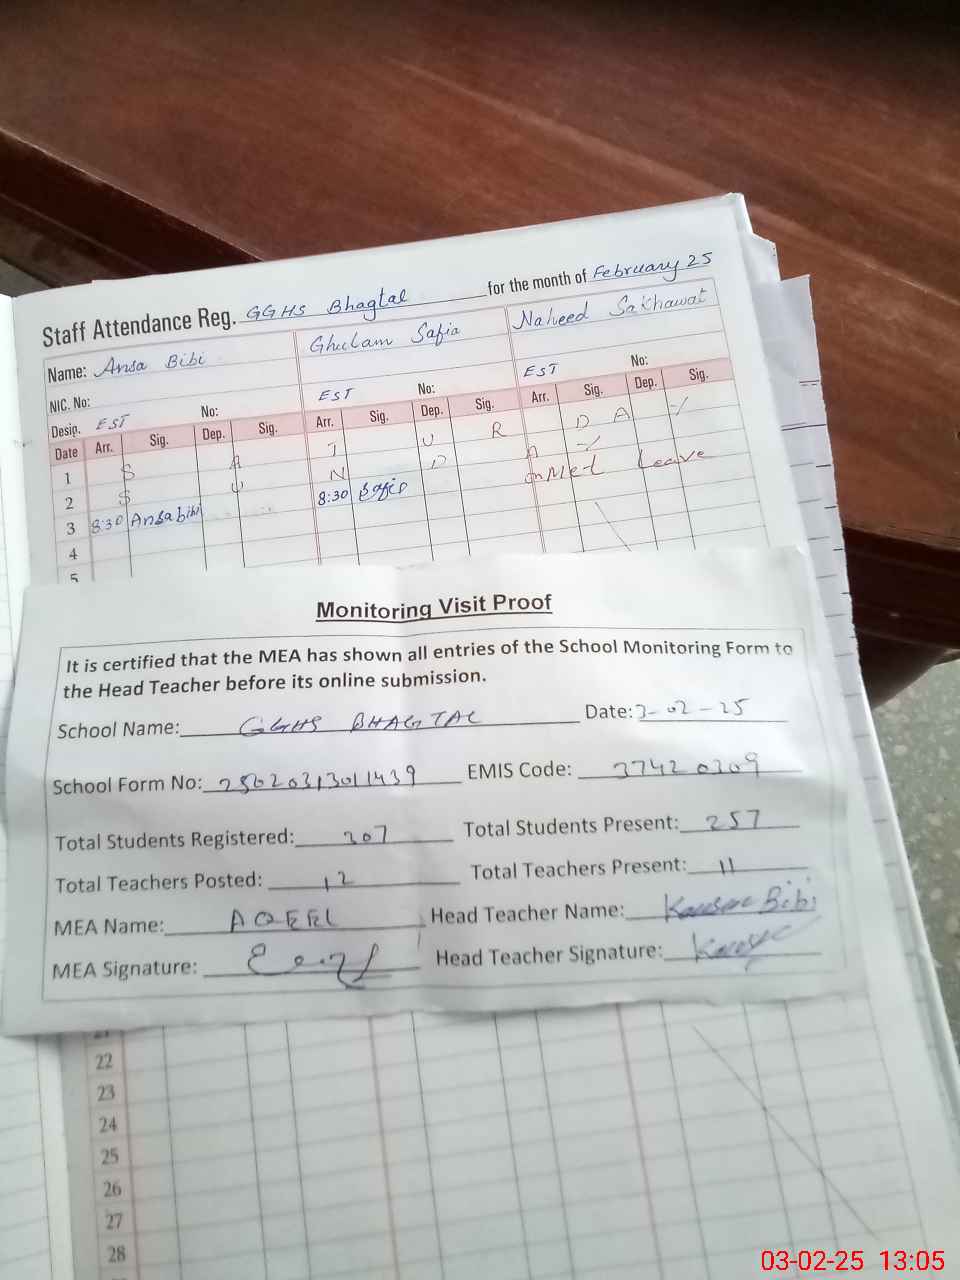 Staff Attendance Reg. GGHS Bhagtal for the month of February 25
Name: Ansa Bibi Ghulam Safia Naheed Sakhawat
NIC. No:
Desip. EST No: EST No: EST No:
Date Arr. Sig. Dep. Sig. Arr. Sig. Dep. Sig. Arr. Sig. Dep. Sig.
1 S A T U R D A Y
2 S U N D A Y
3 8:30 Ansa bibi 8:30 Safia on Med Leave
4
5
Monitoring Visit Proof
It is certified that the MEA has shown all entries of the School Monitoring Form to
the Head Teacher before its online submission.
School Name: GGHS BHAGTAL Date: 3-02-25
School Form No: 25020313011439 EMIS Code: 37420309
Total Students Registered: 307 Total Students Present: 257
Total Teachers Posted: 12 Total Teachers Present: 11
MEA Name: AQEEL Head Teacher Name: Kausar Bibi
MEA Signature: Head Teacher Signature: Kausar
21
22
23
24
25
26
27
28
03-02-25 13:05